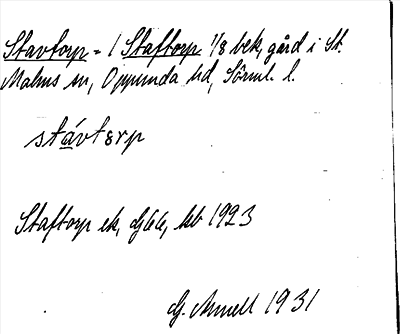 Stavtorp = 1 Staftorp 1/8 bek, gård i St.
Malms sn, Oppunda hd, Sörml. l.
stávtorp
Staftorp ek, GEG, kb 1923
G. Arnell 1931